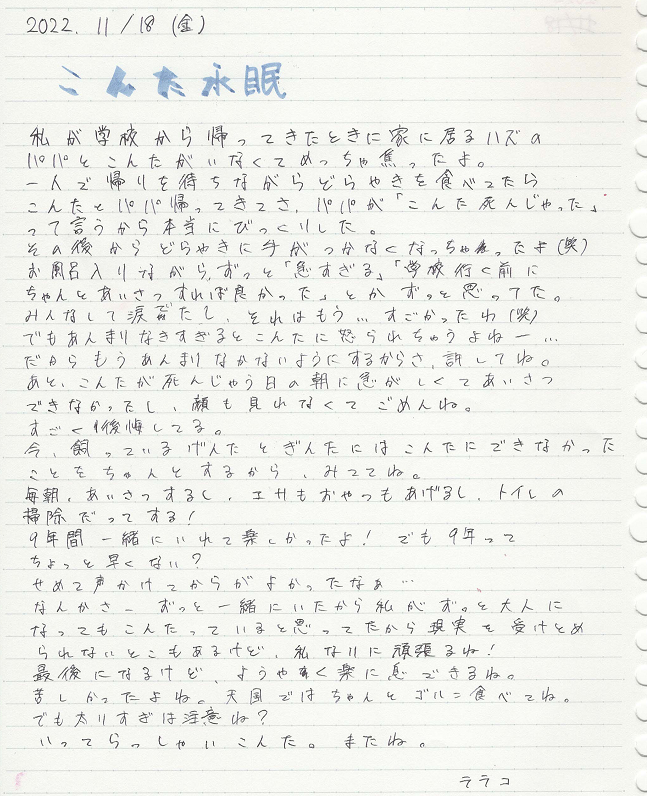 2022. 11/18 (金)
こんた永眠
私が学校から帰ってきたときに家に居るハズの
パパとこんたがいなくてめっちゃ焦ったよ。
一人で帰りを待ちながらどらやきを食べてたら
こんたとパパ帰ってきてさ、パパが「こんた死んじゃった」
って言うから本当にびっくりした。
その後からどらやきに手がつかなくなっちゃったよ(笑)
お風呂入りながら、ずっと「急すぎる」「学校行く前に
ちゃんとあいさつすれば良かった」とかずっと思ってた。
みんなして涙だし、それはもう…すごかったわ(笑)
でもあんまりなきすぎるとこんたに怒られちゃうよねー…
だからもうあんまりなかないようにするからさ、許してね。
あと、こんたが死んじゃう日の朝に急がしくてあいさつ
できなかったし、顔も見れなくてごめんね。
すごく後悔してる。
今、飼っているげんたとぎんたにはこんたにできなかった
ことをちゃんとするから、みててね。
毎朝、あいさつするし、エサもおやつもあげるし、トイレの
掃除だってする!
9年間一緒にいれて楽しかったよ! でも9年って
ちょっと早くない?
せめて声かけてからがよかったなぁ…
なんかさーずっと一緒にいたから私がずっと大人に
なってもこんたっていると思ってたから現実を受けとめ
られないとこもあるけど、私なりに頑張るね!
最後になるけど、ようやく楽に息できるね。
苦しかったよね。天国ではちゃんとゴハン食べてね。
でも太りすぎは注意ね?
いってらっしゃいこんた。またね。
ララコ